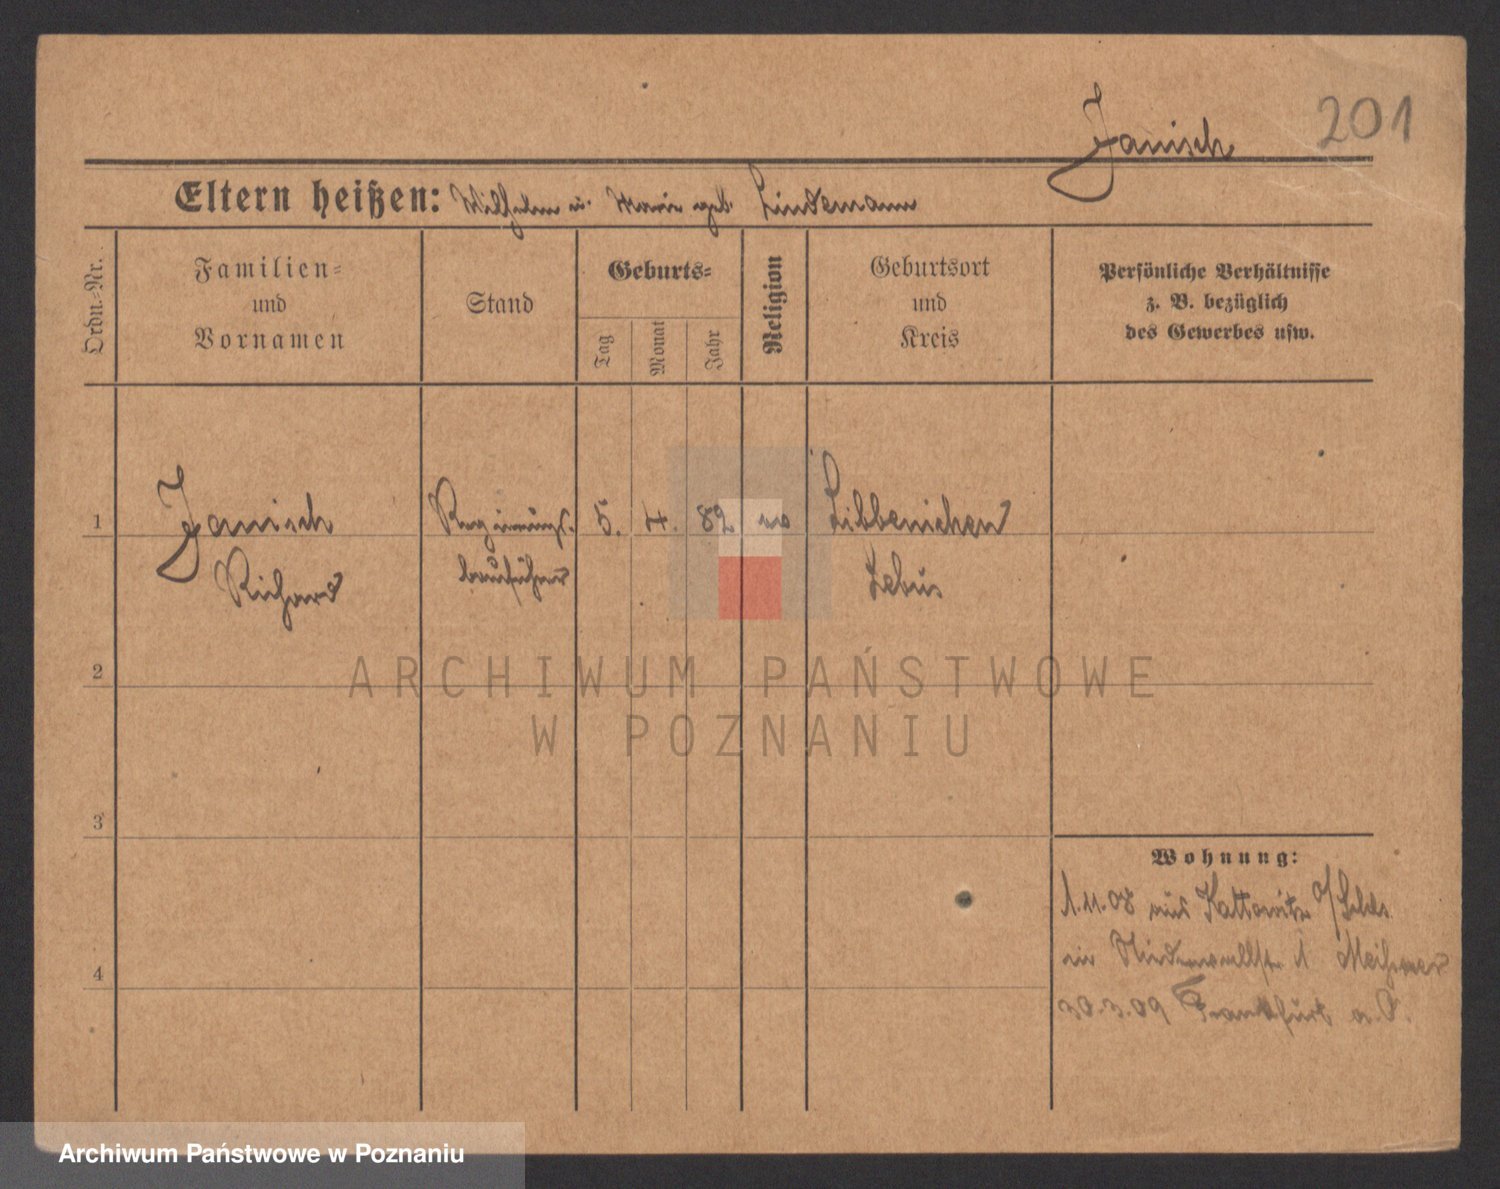 201
Janisch
Eltern heißen: Wilhelm u. Marie geb. Lindemann
Ordn.-Nr.
Familien-
und
Vornamen
Stand
Geburts-
Tag
Monat
Jahr
Religion
Geburtsort
und
Kreis
Persönliche Verhältnisse
z. B. bezüglich
des Gewerbes usw.
1
Janisch
Richard
Regierungs-
bauführer
5.
4.
82
Libbenichen
Lebus
2
3
4
Wohnung:
1.11.08 aus Kattowitz O/Schles
Niederwallstr 1
30.3.09 Frankfurt a. O.
ARCHIWUM PAŃSTWOWE
W POZNANIU
Archiwum Państwowe w Poznaniu